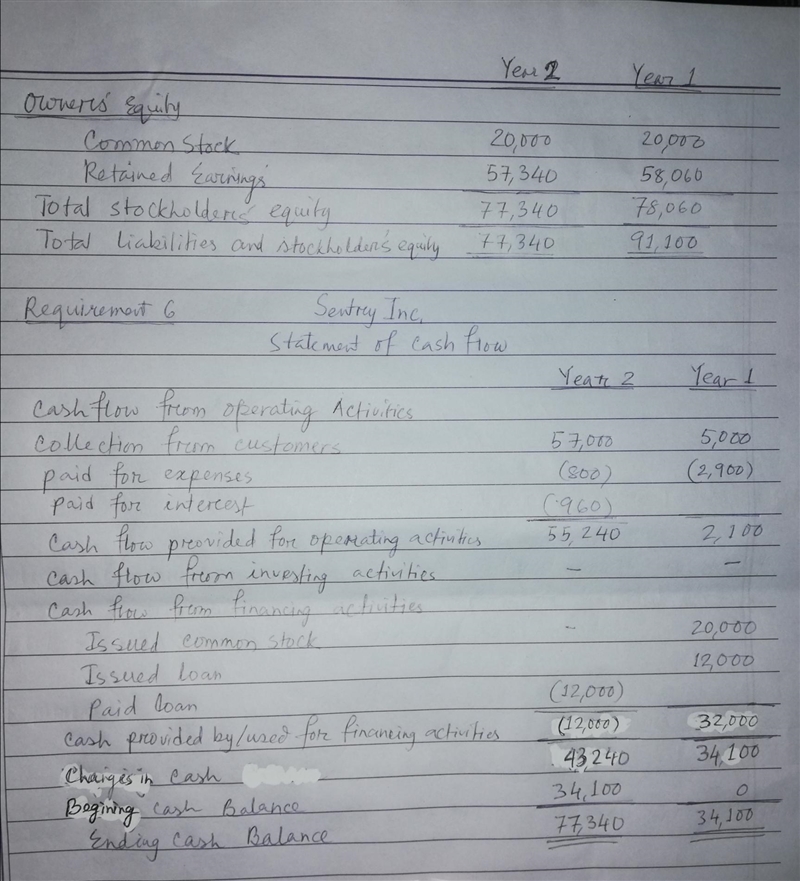 Year 2 Year 1
Owners' Equity
Common Stock 20,000 20,000
Retained Earnings 57,340 58,060
Total stockholders' equity 77,340 78,060
Total liabilities and stockholder's equity 77,340 91,100
Requirement 6 Sentry Inc.
Statement of cash flow
Year 2 Year 1
Cash flow from operating Activities
Collection from customers 57,000 5,000
paid for expenses (800) (2,900)
paid for interest (960)
Cash flow provided for operating activities 55,240 2,100
cash flow from investing activities - -
Cash flow from financing activities
Issued common stock - 20,000
Issued loan 12,000
Paid loan (12,000)
Cash provided by/used for financing activities (12,000) 32,000
Changes in Cash 43,240 34,100
Begining cash Balance 34,100 0
Ending cash Balance 77,340 34,100